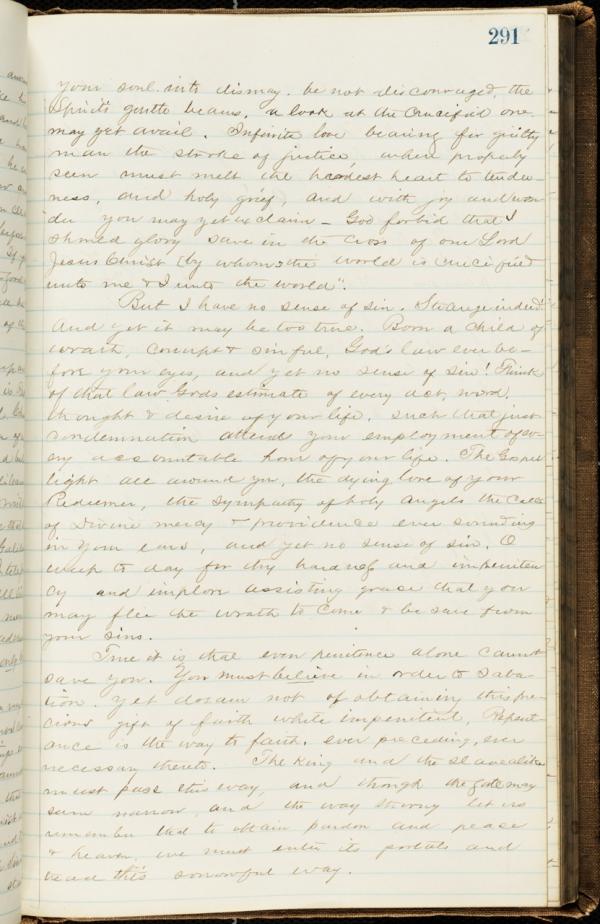 291
your soul into dismay. be not discouraged, the
Spirits gentle beams, a look at the Crucified one
may yet avail. Infinite love bearing for guilty
man the stroke of justice, when properly
seen must melt the hardest heart to tender-
ness, and holy grief, and with joy and won-
der you may yet exclaim – God forbid that I
should glory save in the Cross of our Lord
Jesus Christ by whom the world is crucified
unto me & I unto the world".
But I have no sense of sin. Strange indeed!
And yet it may be too true. Born a child of
wrath, corrupt & sinful, God's law ever be-
fore your eyes, and yet no sense of sin! Think
of that law Gods estimate of every act, word
thought & desire of your life. such that just
condemnation attend your employment of ev-
ery accountable hour of your life. The Gospel
light all around you, the dying love of your
Redeemer, the sympathy of holy angels the calls
of Divine mercy & providence ever sounding
in your ears, and yet no sense of sin. O
weep to day for thy hardness and impeniten
cy and implore assisting grace that you
may flee the wrath to come & be save from
your sins.
True it is that even penitence alone cannot
save you. You must believe in order to salva-
tion. Yet dream not of obtaining this pre-
cious gift of faith while impenitent, Repent-
ance is the way to faith. ever preceding, ever
necessary thereto. The King and the slave alike
must pass this way, and though the gate may
seem narrow, and the way thorny let us
remember that to obtain pardon and peace
& heaven, we must enter its portals and
tread this sorrowful way.